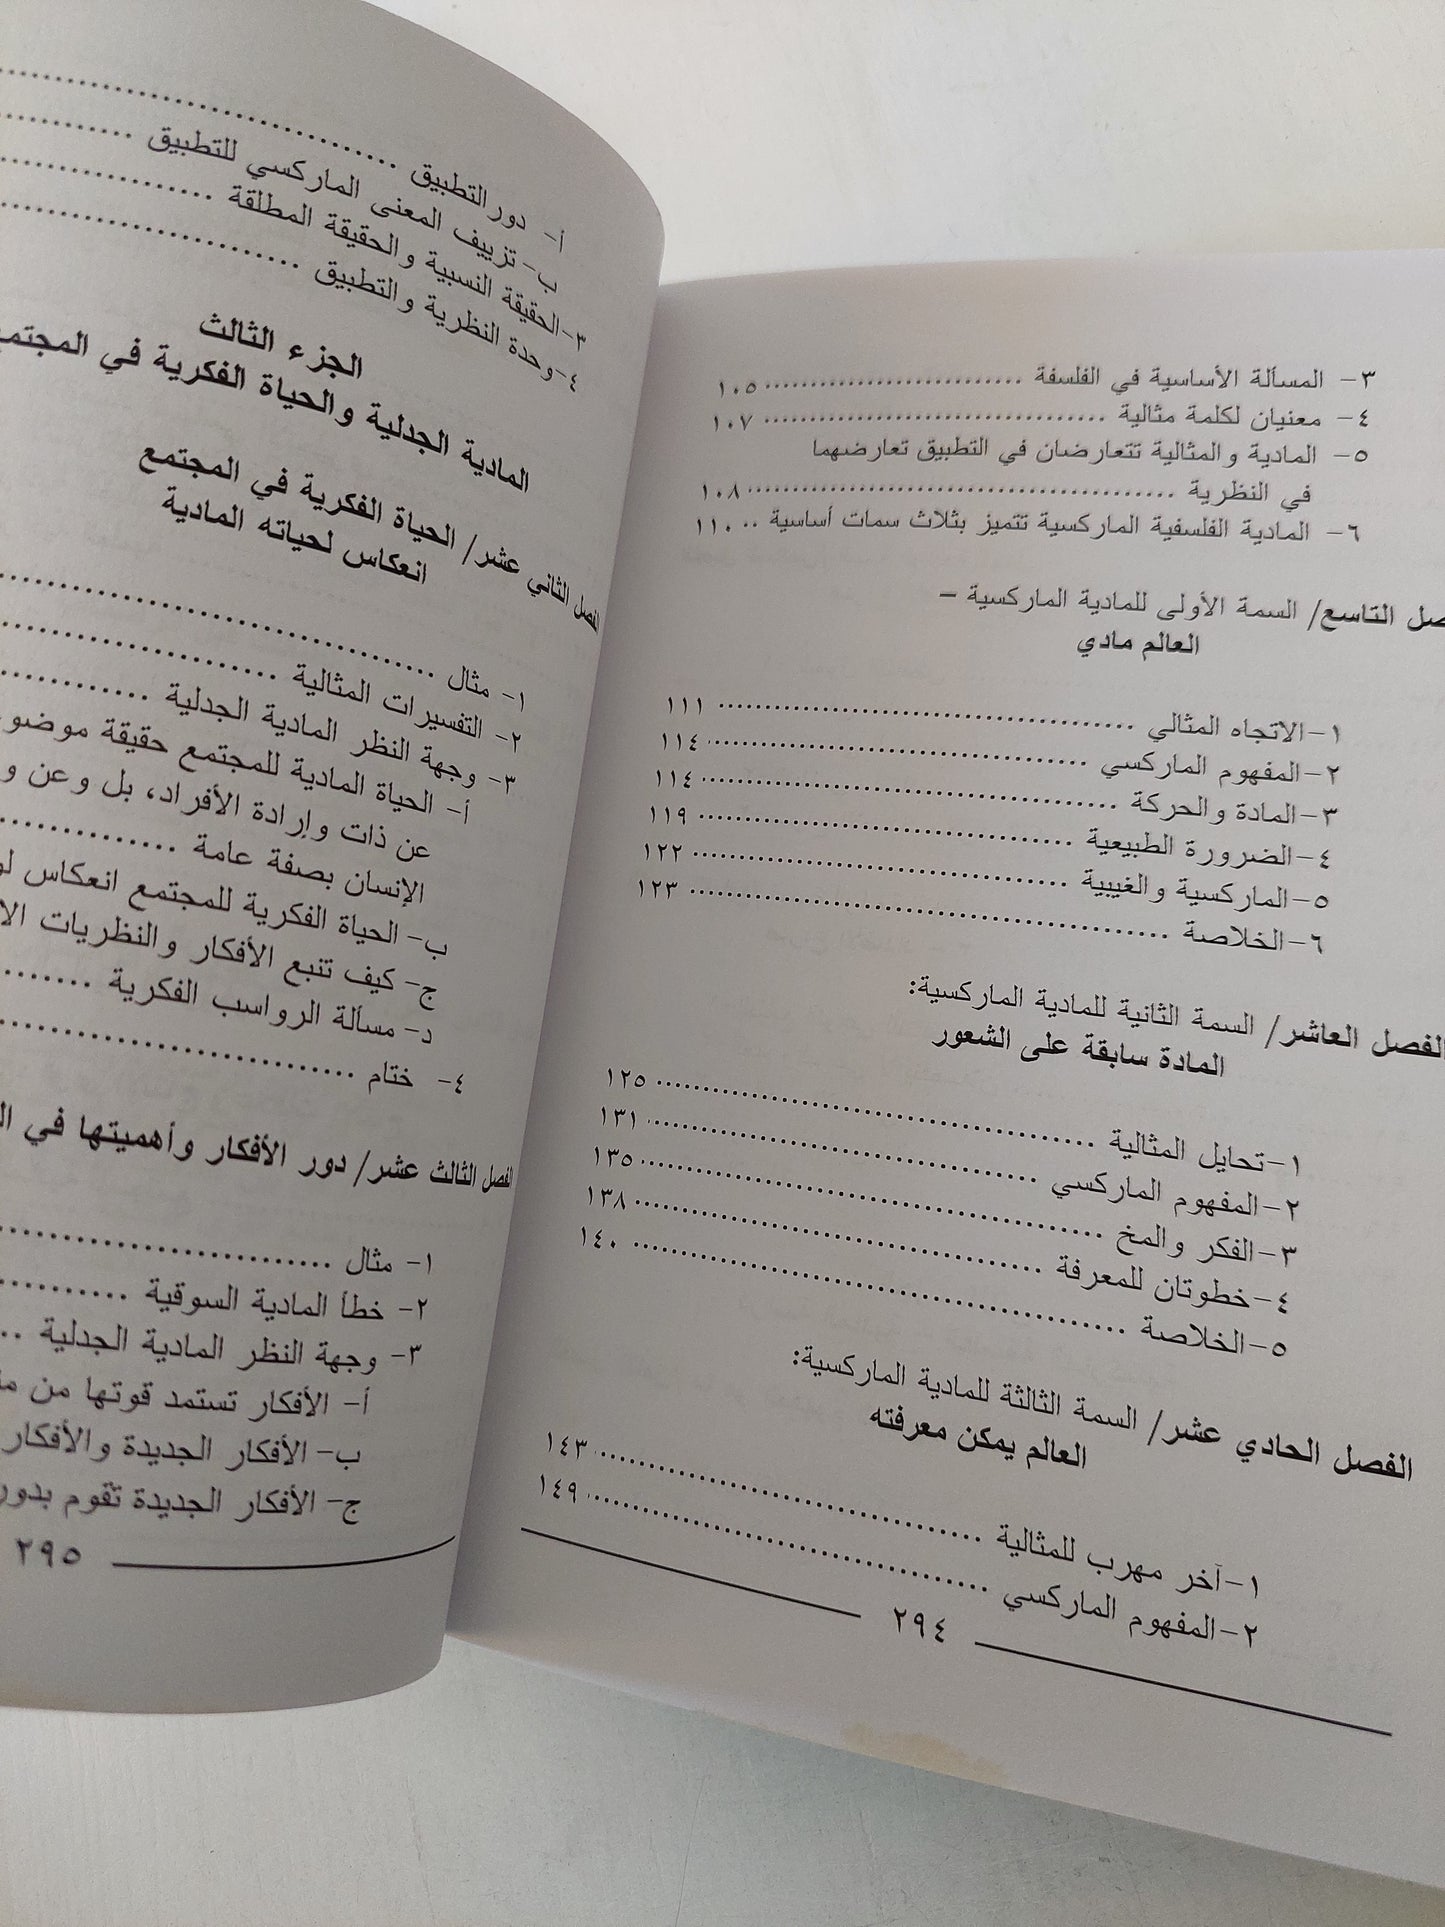 ٣- المسألة الأساسية في الفلسفة ........................... ١٠٥
٤- معنيان لكلمة مثالية .................................... ١٠٧
٥- المادية والمثالية تتعارضان في التطبيق تعارضهما
في النظرية ............................................. ١٠٨
٦- المادية الفلسفية الماركسية تتميز بثلاث سمات أساسية .. ١١٠
التاسع/ السمة الأولى للمادية الماركسية –
العالم مادي
١-الاتجاه المثالي ........................................... ١١١
٢-المفهوم الماركسي ........................................ ١١٤
٣-المادة والحركة ........................................... ١١٤
٤-الضرورة الطبيعية ....................................... ١١٩
٥-الماركسية والغيبية ....................................... ١٢٢
٦-الخلاصة ................................................. ١٢٣
الفصل العاشر/ السمة الثانية للمادية الماركسية:
المادة سابقة على الشعور
١-تحايل المثالية ............................................ ١٢٥
٢-المفهوم الماركسي ........................................ ١٣١
٣-الفكر والمخ .............................................. ١٣٥
٤-خطوتان للمعرفة ......................................... ١٣٨
٥-الخلاصة ................................................. ١٤٠
الفصل الحادي عشر/ السمة الثالثة للمادية الماركسية:
العالم يمكن معرفته
١-آخر مهرب للمثالية ...................................... ١٤٣
٢-المفهوم الماركسي ........................................ ١٤٩
٢٩٤
أ- دور التطبيق ........................................
ب- تزييف المعنى الماركسي للتطبيق ..............
٣-الحقيقة النسبية والحقيقة المطلقة ....................
٤-وحدة النظرية والتطبيق ..............................
الجزء الثالث
المادية الجدلية والحياة الفكرية في
الفصل الثاني عشر/ الحياة الفكرية في المجتمع
انعكاس لحياته المادية
١- مثال ...............................................
٢- التفسيرات المثالية ................................
٣- وجهة النظر المادية الجدلية ....................
أ- الحياة المادية للمجتمع حقيقة
عن ذات وإرادة الأفراد، بل وعن
الإنسان بصفة عامة ................
ب- الحياة الفكرية للمجتمع انعكاس
ج- كيف تنبع الأفكار والنظريات
د- مسألة الرواسب الفكرية ........
٤- ختام ...............................
الفصل الثالث عشر/ دور الأفكار وأهميتها في
١- مثال ..............................
٢- خطأ المادية السوقية ...........
٣- وجهة النظر المادية الجدلية ...
أ- الأفكار تستمد قوتها من
ب- الأفكار الجديدة والأفكار
ج- الأفكار الجديدة تقوم بدور
٢٩٥